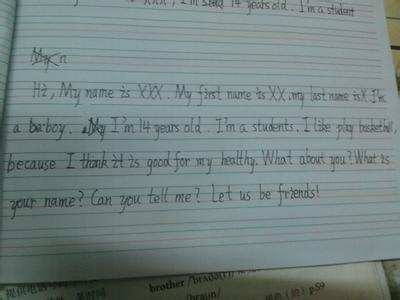 XXX, I'm 14 years old. I'm a student
Hi, My name is XXX. My first name is XX, my last name is X. I'm
a ba boy. I'm 14 years old. I'm a students. I like play basketball,
because I think it is good for my healthy. What about you? What is
your name? Can you tell me? Let us be friends!
提供电话号码
brother /brʌðə(r)/
p.59